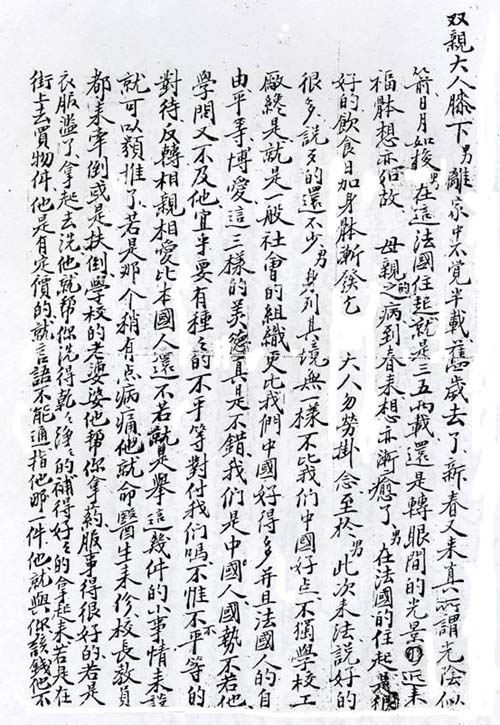 双親大人膝下男離家中不覚半載舊歲去了新春又来真所謂光陰似
箭日月如梭男在這法國住起就是三五兩載還是轉眼間的光景近来
福躰想亦仍故 母親之的病到春来想亦漸癒了男在法國的住起是很
好的飲食日加身躰漸發乞 大人勿勞掛念至於男此次来法説好的
很多説歹的還不少男身列其境無一樣不比我们中國好点不獨學校工
廠終是就是一般社會的組織更比我們中國好得多并且法國人的自
由平等博愛這三樣的美德真是不錯我们是中國人國勢不若他
學問又不及他宜乎要有種々的不平等對付我们嗎不惟不平等的
對待反轉相親相愛比本國人還不若就是舉這幾件的小事情来説
就可以類推了若是那个稍有点病痛他就命醫生来診校長教員
都来率倒或是扶倒學校的老婆婆他帮你拿葯服事得很好的若是
衣服濫了拿起去洗他就帮你洗得乾々淨々的補得好々的拿起来若是在
街上去買物件他是有定價的就言語不能通指他那一件他就與你該錢他不